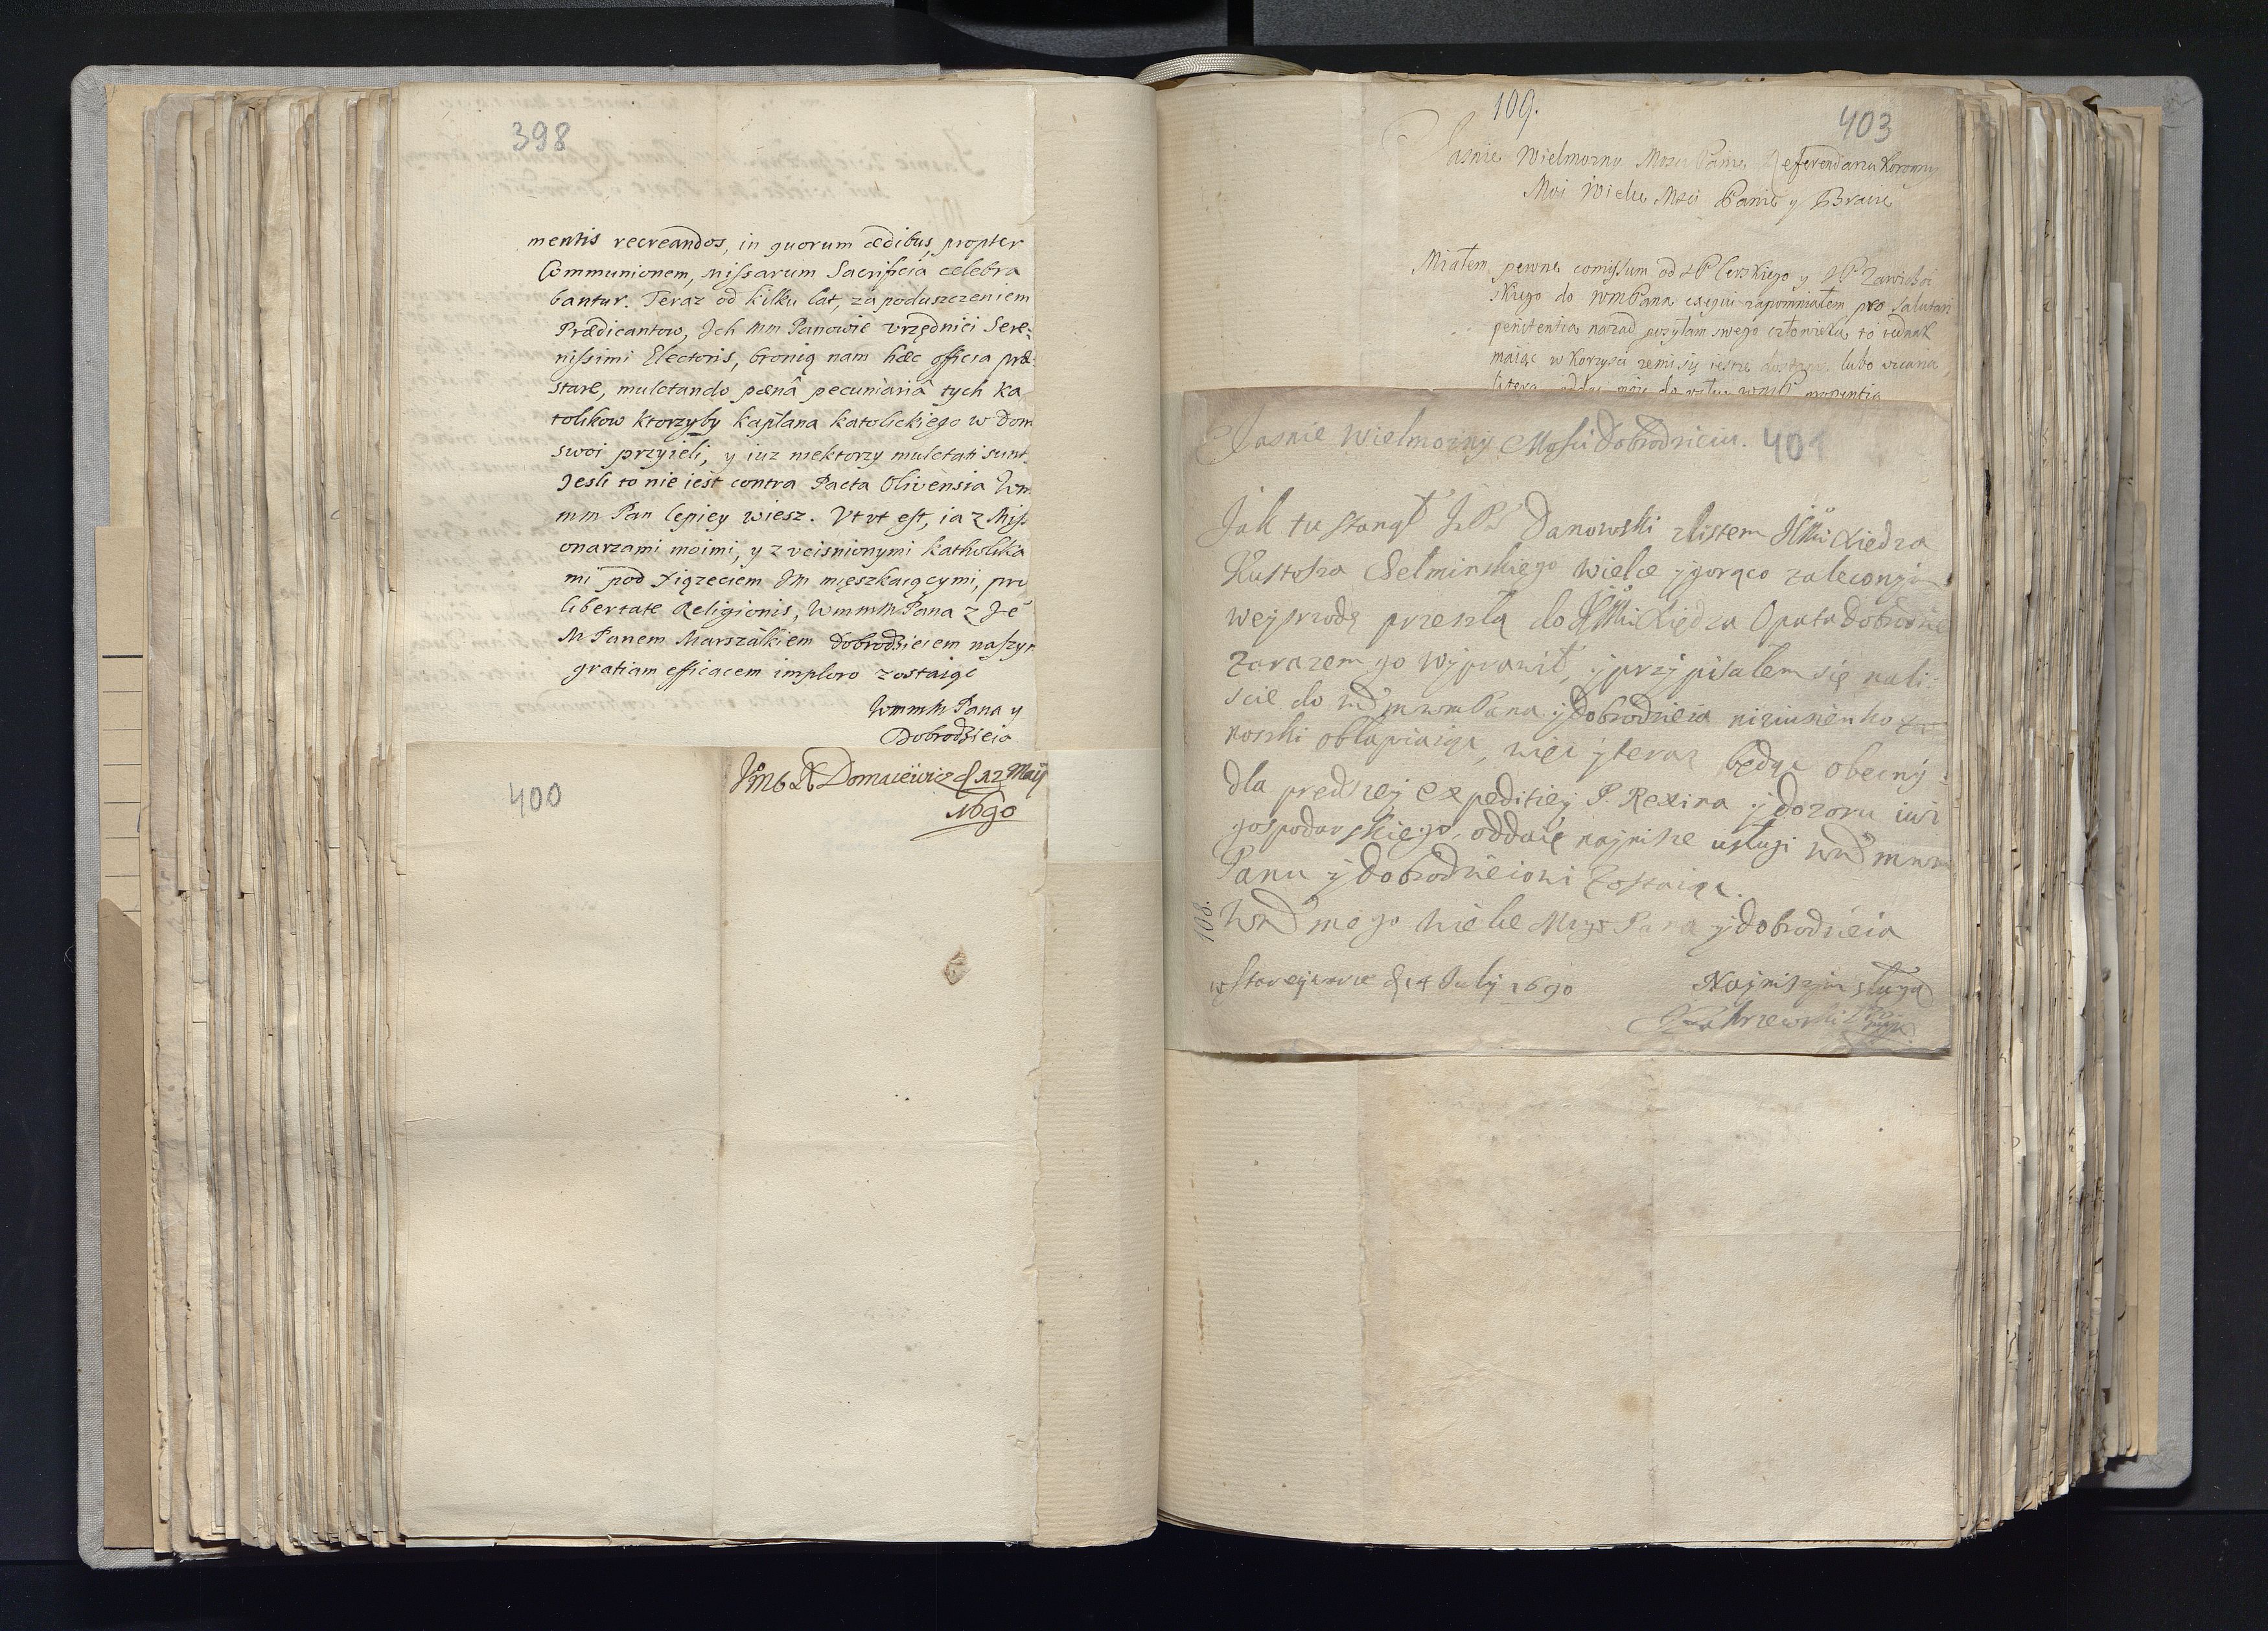 398
mentis recreandos, in quorum ædibus, propter
Communionem, Missarum Sacrificia celebra
bantur. Teraz od kilku lat, za poduszczeniem
Prædicantow, Ich mm Panowie vrzędnici Sere-
nissimi Electoris, bronią nam hæc officia præ
stare, mulctando pœnâ pecuniariâ tych ka
tolikow ktorzyby kapłana katolickiego w dom
swoi przyieli, y iuz niektorzy mulctati sunt.
Jesli to nie iest contra Pacta Olivensia Wm
mm Pan lepiey wiesz. Vt vt est, ia z Miss
onarzami moimi, y z vcisnionymi katholika
mi pod Xiązęciem Jm mięszkaiącymi, pro
libertate Religionis, Wmmm Pana z Je
M Panem Marszałkiem dobrodzieiem naszym
gratiam efficacem imploro zostaiąc
Wmmm Pana y
Dobrodzieia
400
Domaiewicz d 12 Maij
1690
109.
403
Jasnie Wielmozny Mosci Panie Referendarzu Koronny
Moi Wielce Msci Panie y Bracie
Miałem pewne comissum od JP Czerskiego y JP Zawidzi
skiego do WmPana exequi zapomniałem pro salutari
penitentia nazad posyłam swego człowieka to iednak
maiąc w korzysci ze mi się ieszcze dostanie lubo vicaria
Jasnie Wielmozny Mosci Dobrodzieiu. 401
Jak tu stanął JP Danowski z listem JMci Xiędza
Kustosza Chelminskiego wielce y gorąco zaleconym
weyswodą przeszłą do JMci Xiędza Opata Dobrodzie
Zarazem go wyprawił, y przypisałem się na li-
scie do Wd mwm Pana y Dobrodzieia niziusienko
noszki obłapiaiąc, więc y teraz będąc obecny
dla prędszey expeditiey P. Rexina y dozoru iuż
gospodarskiego, oddaię nayniże usługi Wd mwm
Panu y Dobrodzieiowi Zostaiąc.
Wd mego Wielce Mgo Pana y Dobrodzieia
108.
d 14 July 1690
Nayniszym sługą